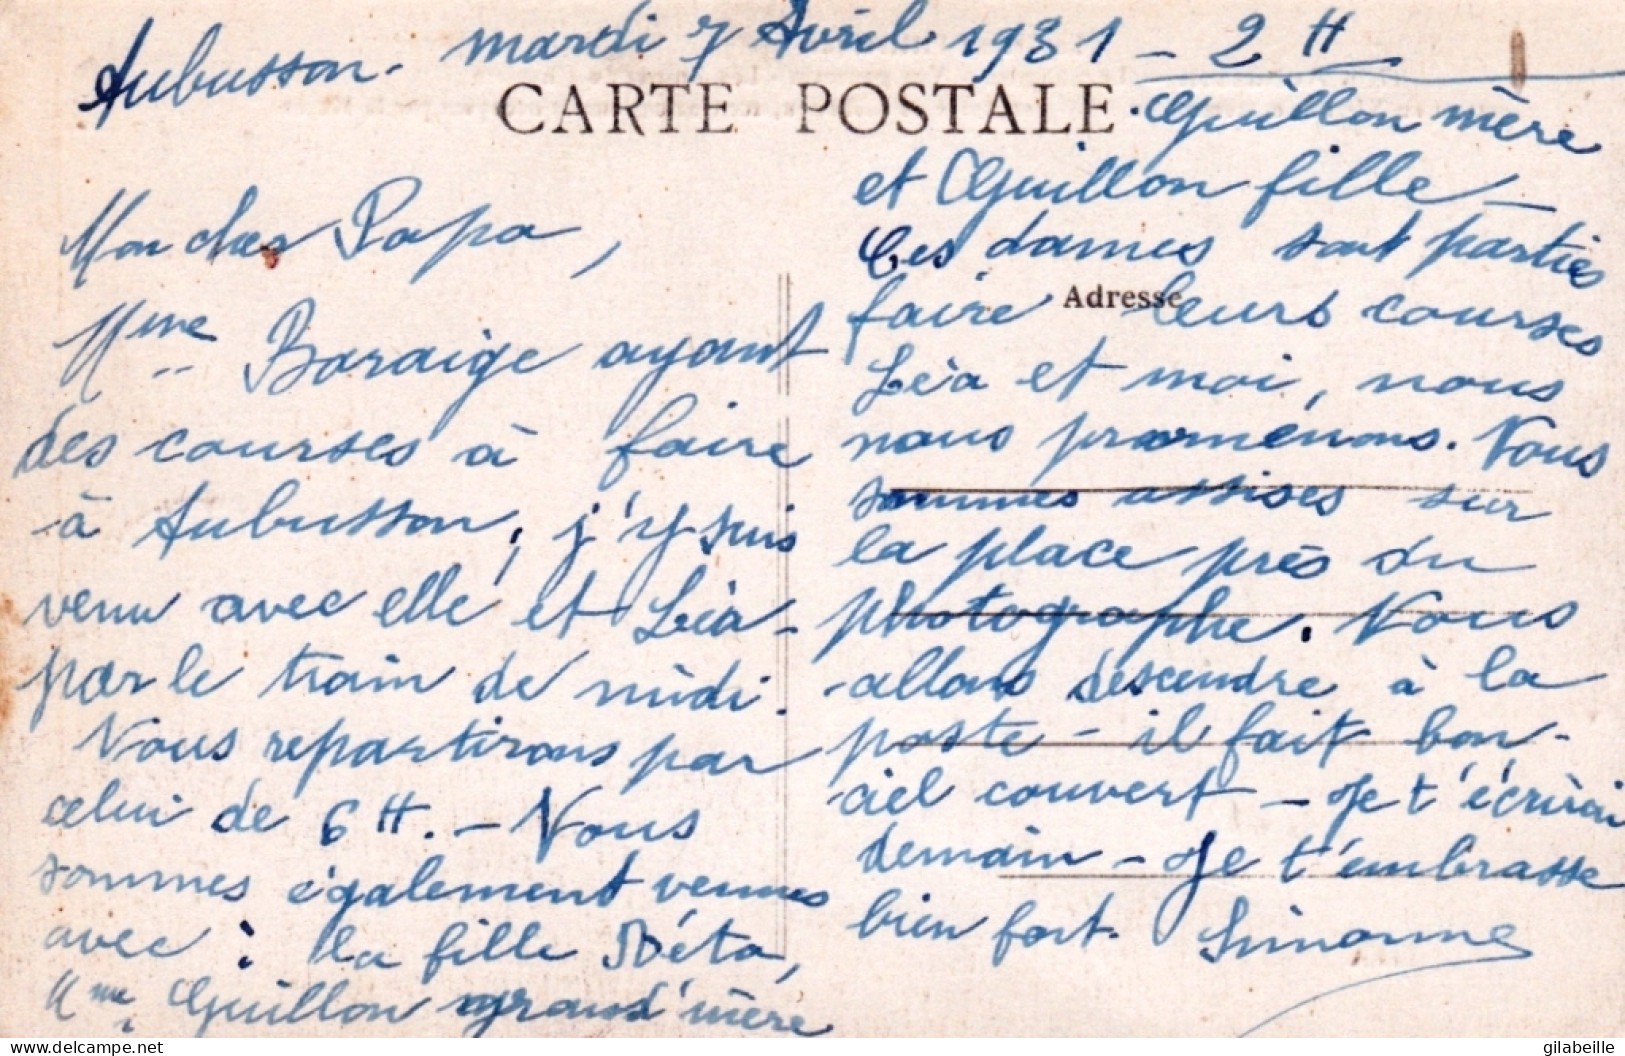 Aubusson - mardi 7 Avril 1931 - 2 H
CARTE POSTALE
Mon cher Papa,
Mme Baraige ayant
des courses à faire
à Aubusson, j'y suis
venu avec elle et Léa -
par le train de midi.
Nous repartirons par
celui de 6 H. - Nous
sommes également venues
avec : la fille Déta,
Mme Guillon grand'mère
Guillon mère
et Guillon fille -
Ces dames sont parties
Adresse
faire leurs courses
Léa et moi, nous
nous promenons. Nous
sommes assises sur
la place près du
photographe. Nous
allons descendre à la
poste - il fait bon -
ciel couvert - Je t'écrirai
demain - Je t'embrasse
bien fort. Simonne
gilabeille
delcampe.net